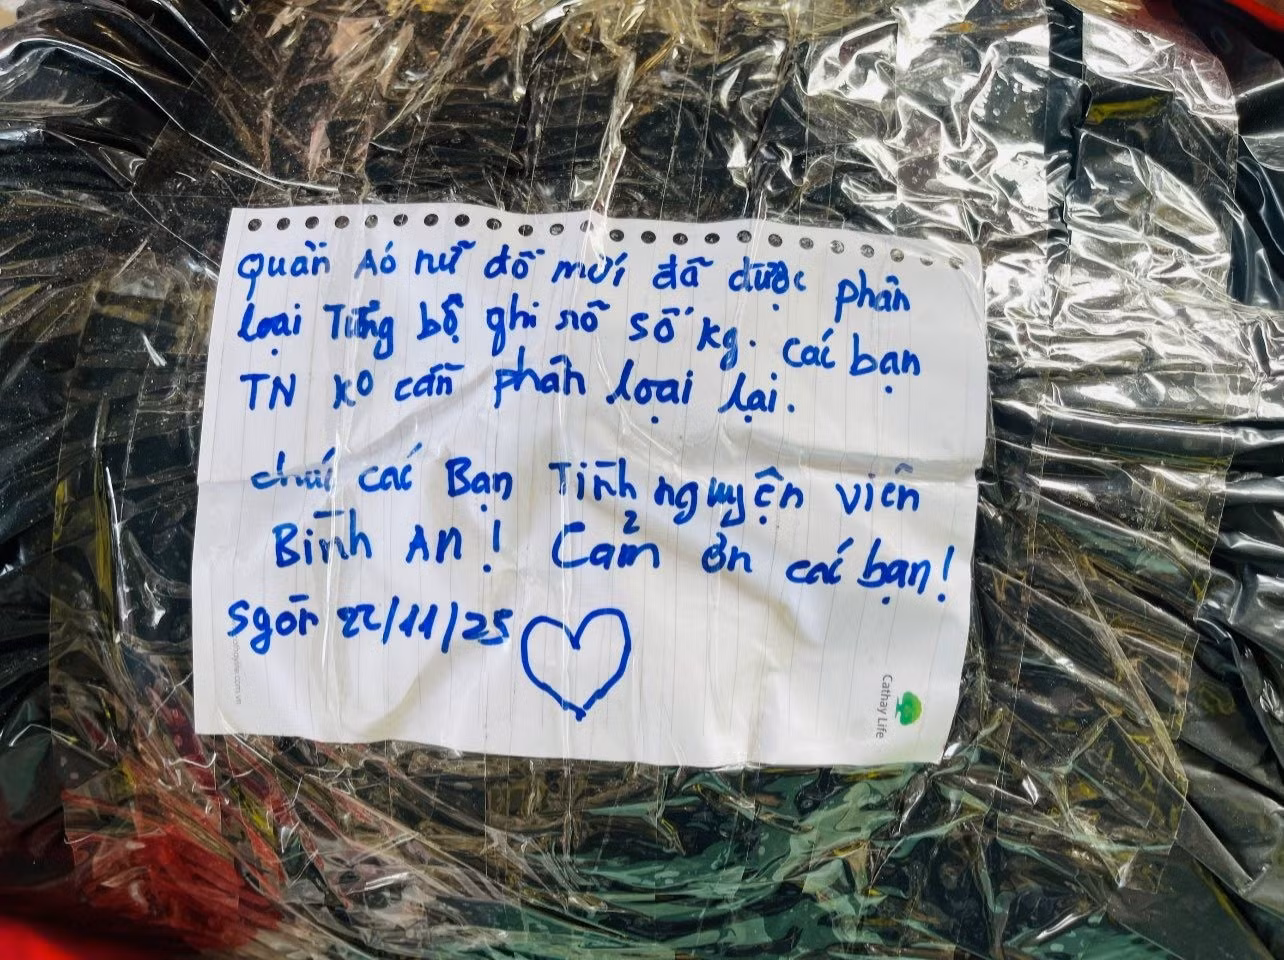 Quần Áo nữ đồ mới đã được phân
loại Từng bộ ghi rõ số kg. các bạn
TN ko cần phân loại lại.
chúc các Bạn Tình nguyện viên
Bình An! Cảm ơn các bạn!
Sgòn 22/11/25
Cathay Life